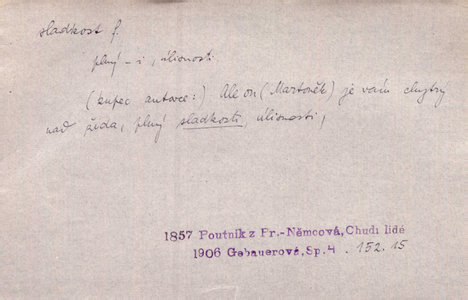 sladkost f.
plný -i, úlisnosti
(kupec autorce:) Ale on (Martoněk) je vám chytrý
nad žida, plný sladkosti, úlisnosti,
1857 Poutník z Pr.-Němcová, Chudí lidé
1906 Gebauerová, Sp. 4 . 152.15